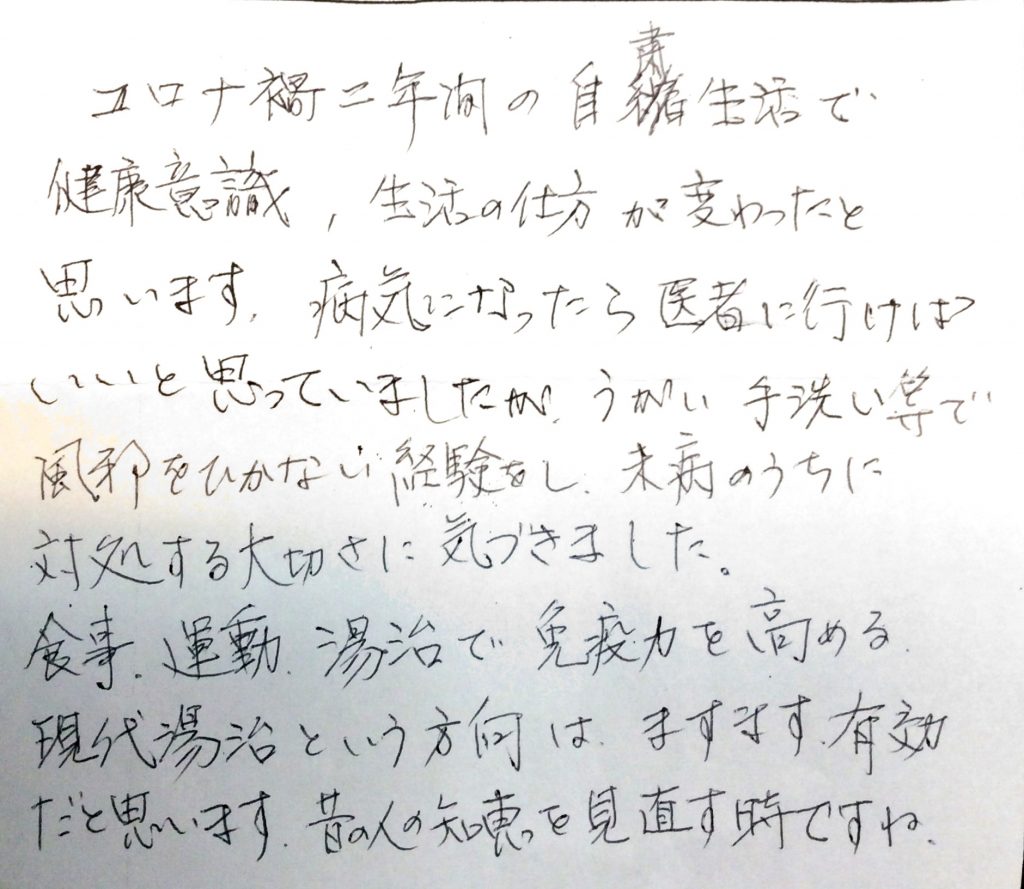 コロナ禍二年間の自粛生活で
健康意識、生活の仕方が変わったと
思います。病気になったら医者に行けば
いいと思っていましたが、うがい手洗い等で
風邪をひかない経験をし、未病のうちに
対処する大切さに気づきました。
食事、運動、湯治で免疫力を高める
現代湯治という方向は、ますます、有効
だと思います。昔の人の知恵を見直す時ですね。